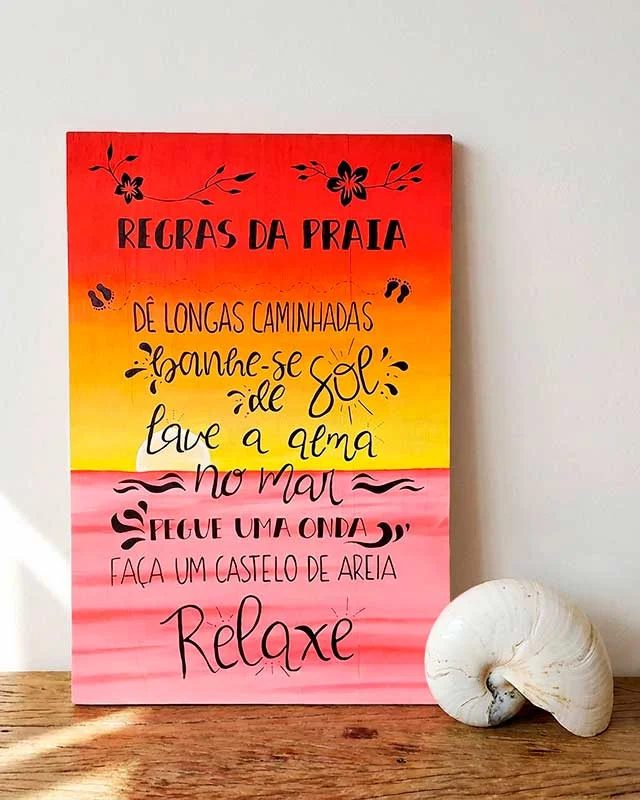 REGRAS DA PRAIA
DÊ LONGAS CAMINHADAS
banhe-se
de Sol
lave a alma
no mar
PEGUE UMA ONDA
FAÇA UM CASTELO DE AREIA
Relaxe